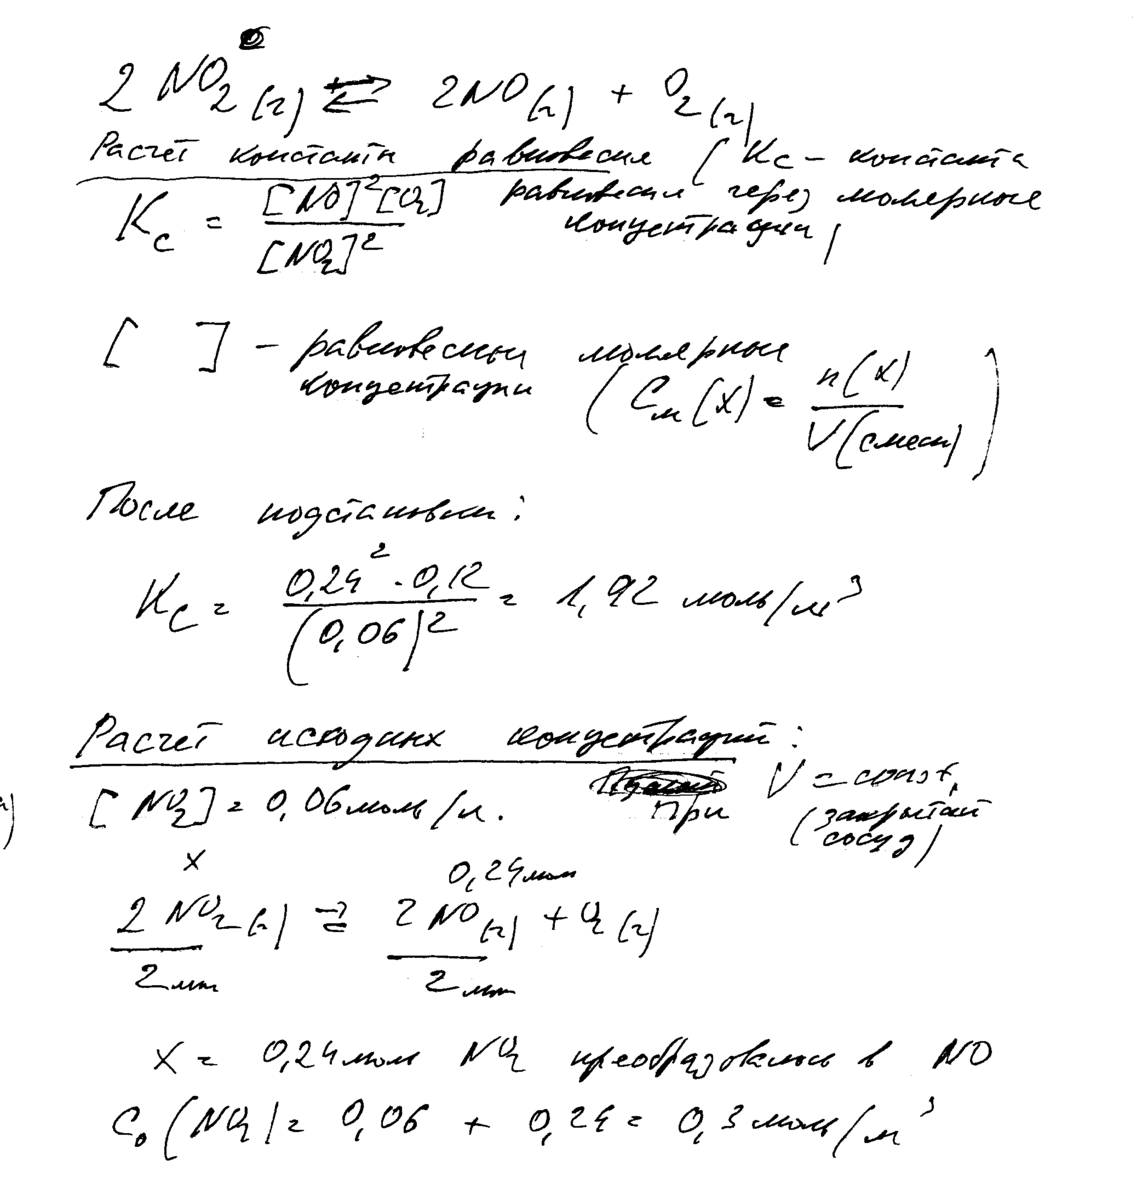 2 NO2 (г) ⇄ 2NO(г) + O2 (г)
Расчёт константы равновесия (Kc – константа
равновесия через молярные
концентрации)
Kc = [NO]²[O2] / [NO2]²
[ ] – равновесные молярные
концентрации ( Cм (X) = n(X) / V(смеси) )
После подстановки:
Kc = 0,24² · 0,12 / (0,06)² = 1,92 моль/м³
Расчёт исходных концентраций:
[NO2] = 0,06 моль/л. При V = const,
(закрытый
сосуд)
x 0,24 моль
2 NO2 (г) ⇄ 2 NO (г) + O2 (г)
2 моль 2 моль
x = 0,24 моль NO2 преобразовалось в NO
C₀ (NO2) = 0,06 + 0,24 = 0,3 моль/м³